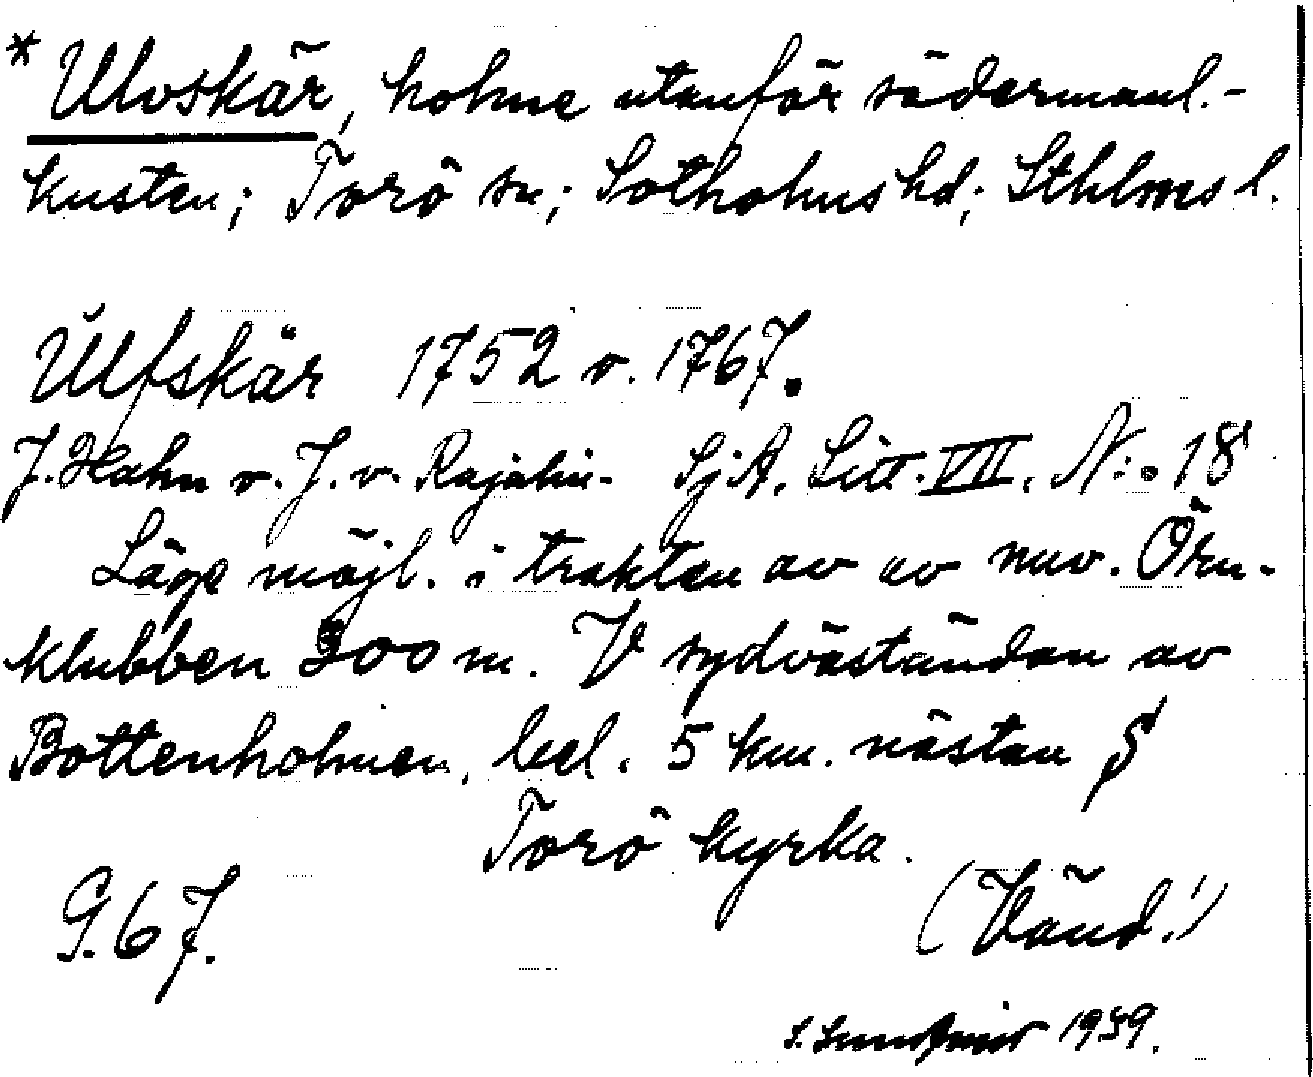 * Ulvskär, holme utanför södermanl.-
kusten; Torö sn; Sotholms hd; Sthlms l.
Ulfskär 1752 o. 1767.
J. Hahn o. J. v. Rajalin. SjA. Litt. VII. N:o 18
Läge möjl. i trakten av av nuv. Örn-
klubben 300 m. V sydväständan av
Bottenholmen, bel. 5 km. nästan S
Torö kyrka.
G. 67.
(Vänd!)
S. 1939.